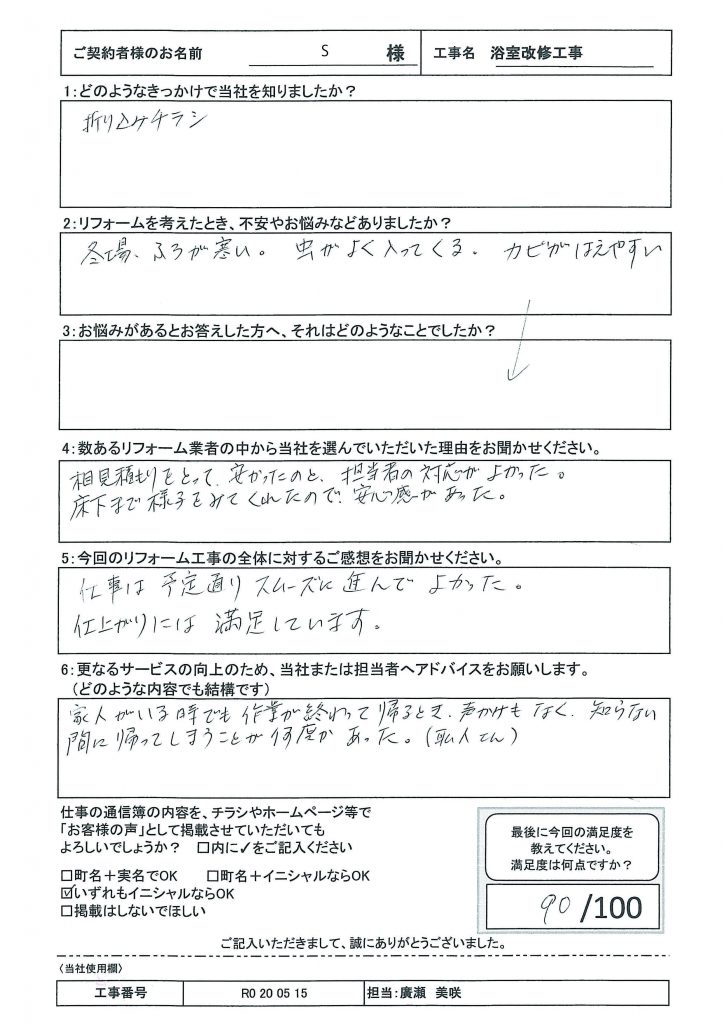 ご契約者様のお名前 S 様 工事名 浴室改修工事
1:どのようなきっかけで当社を知りましたか?
折り込みチラシ
2:リフォームを考えたとき、不安やお悩みなどありましたか?
冬場、ふろが寒い。 虫がよく入ってくる。 カビがはえやすい
3:お悩みがあるとお答えした方へ、それはどのようなことでしたか?
4:数あるリフォーム業者の中から当社を選んでいただいた理由をお聞かせください。
相見積もりをとって、安かったのと、担当者の対応がよかった。
床下まで様子をみてくれたので、安心感があった。
5:今回のリフォーム工事の全体に対するご感想をお聞かせください。
仕事は予定通りスムーズに進んでよかった。
仕上がりには満足しています。
6:更なるサービスの向上のため、当社または担当者へアドバイスをお願いします。
(どのような内容でも結構です)
家人がいる時でも作業が終わって帰るとき、声かけもなく、知らない
間に帰ってしまうことが何度かあった。(職人さん)
仕事の通信簿の内容を、チラシやホームページ等で
「お客様の声」として掲載させていただいても
よろしいでしょうか? □内に✓をご記入ください
□町名+実名でOK □町名+イニシャルならOK
☑いずれもイニシャルならOK
□掲載はしないでほしい
最後に今回の満足度を
教えてください。
満足度は何点ですか?
90/100
ご記入いただきまして、誠にありがとうございました。
〈当社使用欄〉
工事番号 R0 20 05 15 担当:廣瀬 美咲